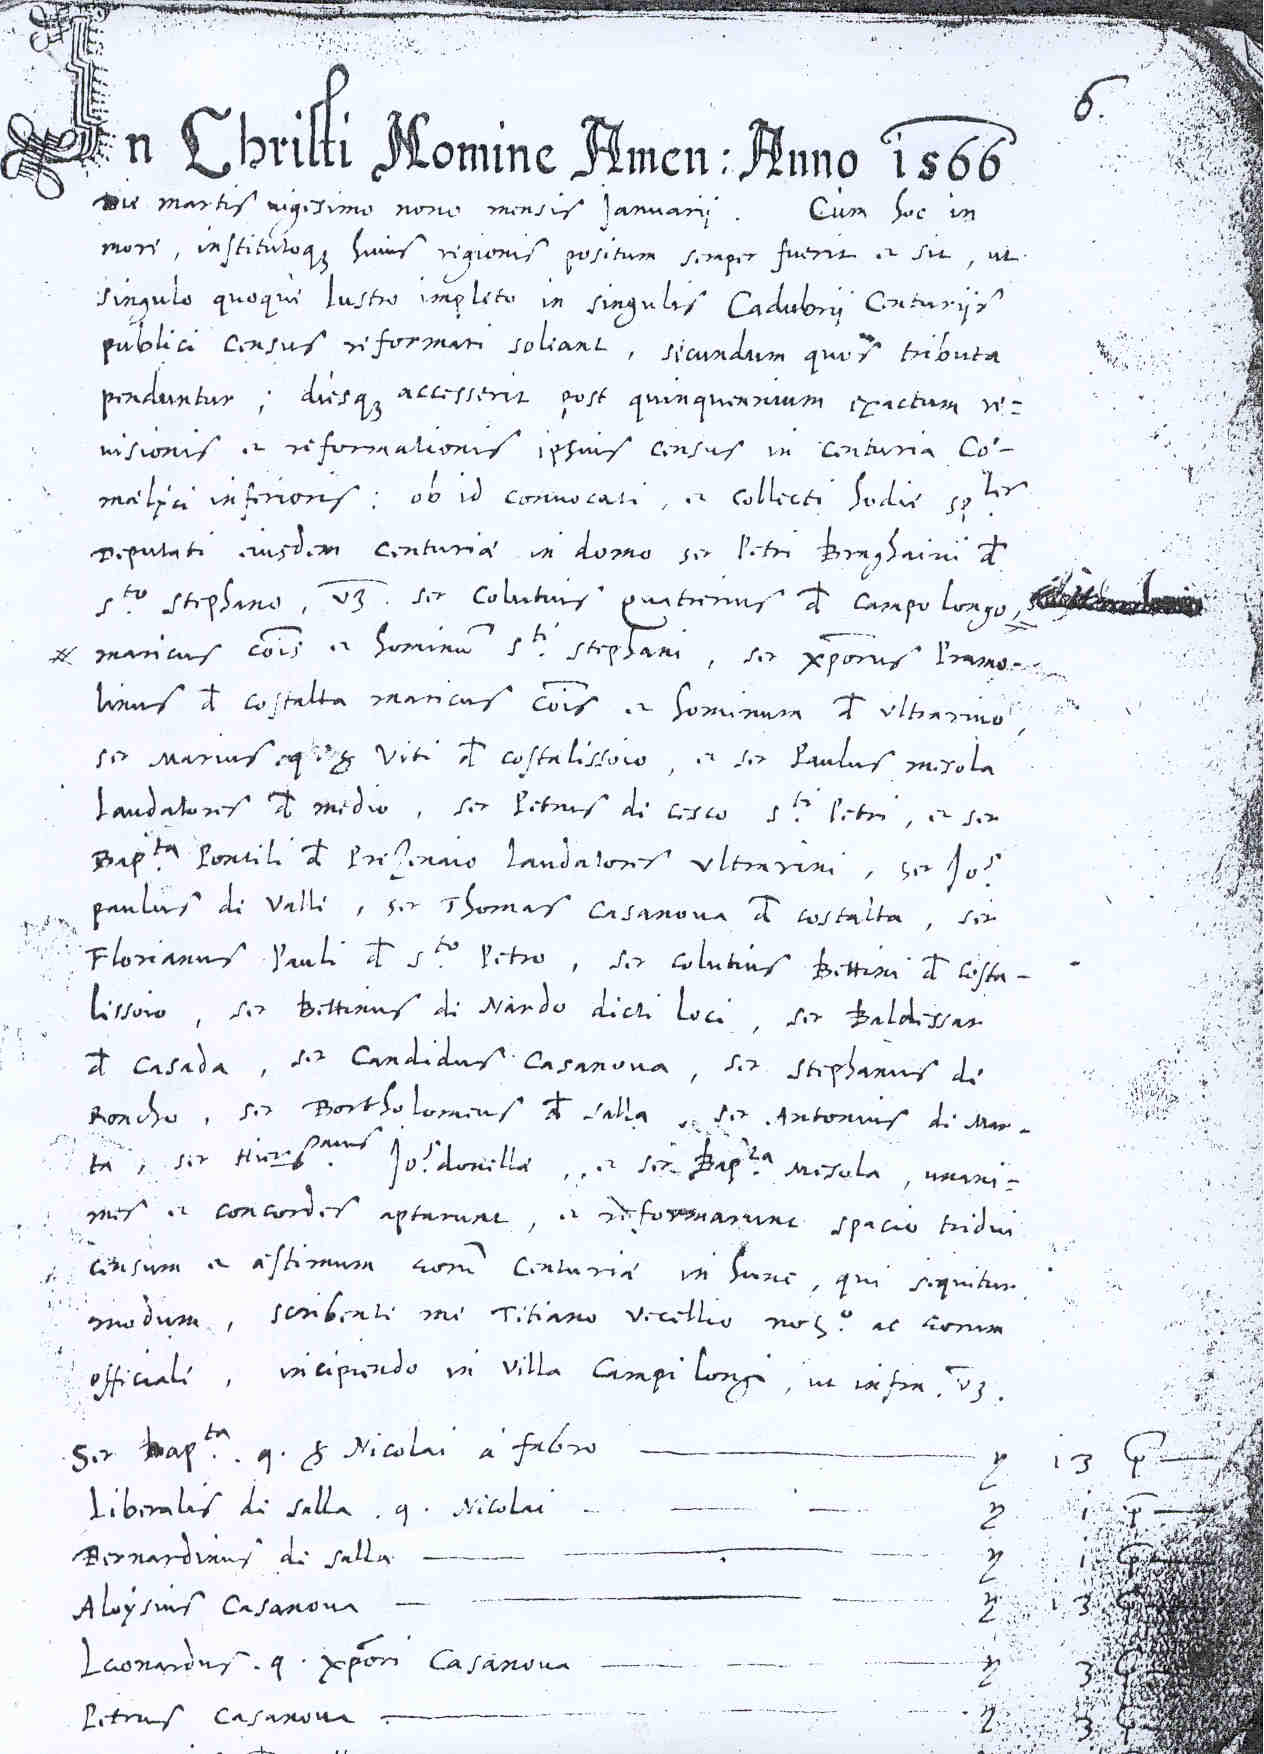 6.
In Christi Nomine Amen: Anno 1566
Die martis vigesimo nono mensis Januarij. Cum hoc in
more, institutoq; huius regionis positum semper fuerit et sit, ut
singulo quoque lustro impleto in singulis Cadubrij Centurijs
publici census reformari soleant, secundum quos tributa
penduntur; diesq; accesserit post quinquennium exactum re=
uisionis et reformationis ipsius census in centuria Co-
melici inferioris: ob id conuocati, et collecti hodie sp.ter
Deputati eiusdem centuriae in domo ser Petri Braghainii d
s.to Stephano, vz. ser Colutius quatrerius d Campo longo,
maricus cois et hominu s.ti Stephani, ser xpõrus Pramo-
linus d costalta maricus cois et hominum d vltrarino,
ser Marius q. Viti d costalissoio, et ser Paulus mesola
laudatores d medio, ser Petrus de cesco s.ti Petri, et ser
Bap.ta Pontili d Prezenaio laudatores vltrarini, ser Jo.s
paulus de Valle, ser Thomas Casanoua d costalta, ser
Florianus Pauli d s.to Petro, ser colutius Bettini d costa-
lissoio, ser Bettinus de Nardo dicti loci, ser Baldessar
d Casada, ser Candidus Casanoua, ser Stephanus de
Roncho, ser Bortholomeus d salla, ser Antonius de Mar-
ta, ser Jo.s donellae, et ser Bap.ta Mesola, unani=
mes et concordes aptarunt, et reformarunt spacio tridui
censum et aestimum eoru Centuriae in hunc, qui sequitur
modum, scribente me Titiano Vecellio not.o ac eorum
officiali, incipiendo in villa Campi longi, ut infra. vz.
Ser Bap.ta q. Nicolai à fabro 13
Liberalis de salla q. Nicolai 1
Bernardinus de salla 1
Aloysius Casanoua 13
Leonardus q. xpõri Casanoua 3
Petrus Casanoua 3